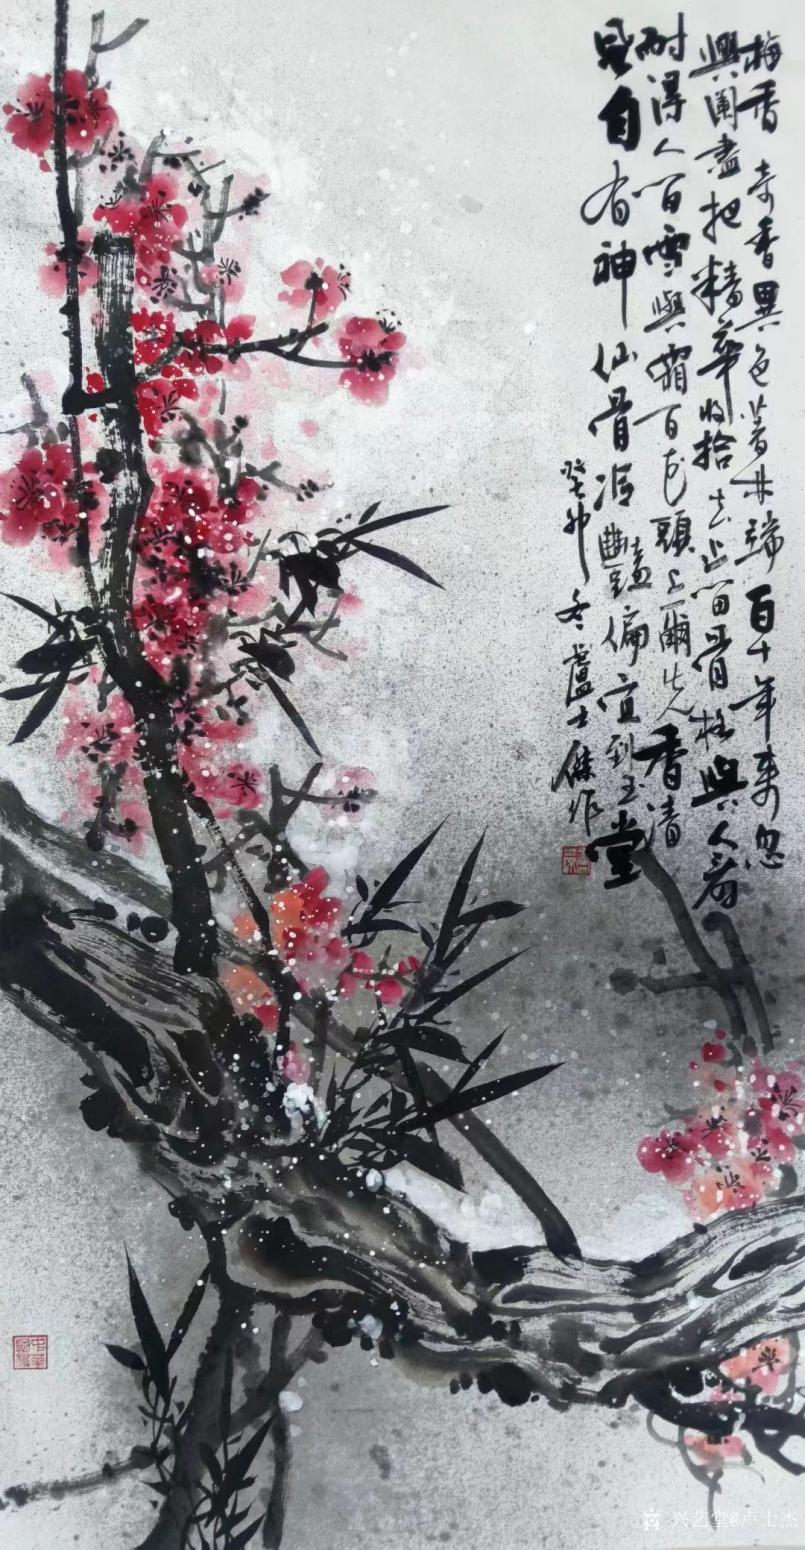 梅香 奇香異色著林端 百十年來忽
興闌 盡把精華收拾去 止留骨格與人看
耐得人間雪與霜 百花頭上爾先香 清
是自有神仙骨 冷艷偏宜到玉堂
癸卯冬 盧士傑作
兴艺堂@卢士杰